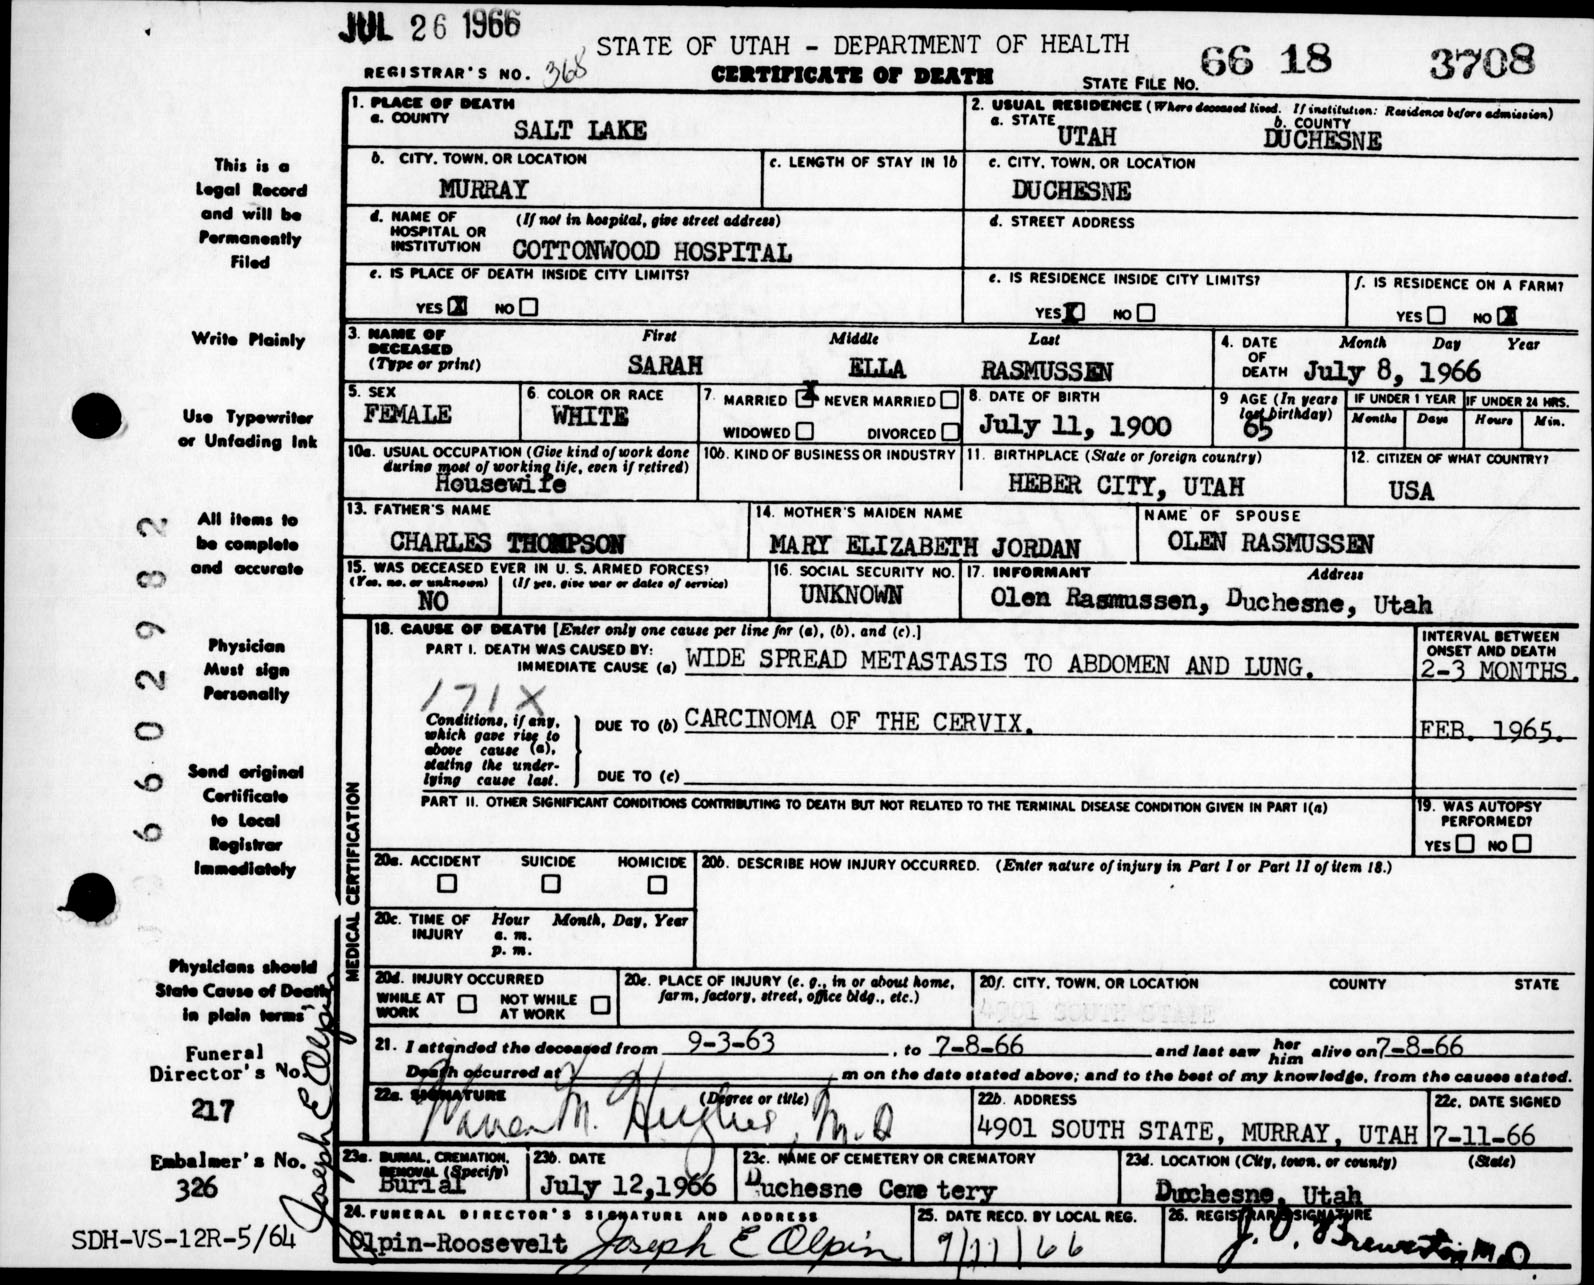 JUL 26 1966
STATE OF UTAH - DEPARTMENT OF HEALTH
REGISTRAR'S NO. 368
CERTIFICATE OF DEATH
STATE FILE NO. 66 18 3708
1. PLACE OF DEATH
a. COUNTY
SALT LAKE
2. USUAL RESIDENCE (Where deceased lived. If institution: Residence before admission)
a. STATE b. COUNTY
UTAH DUCHESNE
b. CITY, TOWN, OR LOCATION
MURRAY
c. LENGTH OF STAY IN 1b
c. CITY, TOWN, OR LOCATION
DUCHESNE
d. NAME OF HOSPITAL OR INSTITUTION (If not in hospital, give street address)
COTTONWOOD HOSPITAL
d. STREET ADDRESS
e. IS PLACE OF DEATH INSIDE CITY LIMITS?
YES X NO
e. IS RESIDENCE INSIDE CITY LIMITS?
YES X NO
f. IS RESIDENCE ON A FARM?
YES NO X
3. NAME OF DECEASED (Type or print)
First Middle Last
SARAH ELLA RASMUSSEN
4. DATE OF DEATH
Month Day Year
July 8, 1966
5. SEX
FEMALE
6. COLOR OR RACE
WHITE
7. MARRIED X NEVER MARRIED
WIDOWED DIVORCED
8. DATE OF BIRTH
July 11, 1900
9 AGE (In years last birthday)
65
IF UNDER 1 YEAR
Months Days
IF UNDER 24 HRS.
Hours Min.
10a. USUAL OCCUPATION (Give kind of work done during most of working life, even if retired)
Housewife
10b. KIND OF BUSINESS OR INDUSTRY
11. BIRTHPLACE (State or foreign country)
HEBER CITY, UTAH
12. CITIZEN OF WHAT COUNTRY?
USA
13. FATHER'S NAME
CHARLES THOMPSON
14. MOTHER'S MAIDEN NAME
MARY ELIZABETH JORDAN
NAME OF SPOUSE
OLEN RASMUSSEN
15. WAS DECEASED EVER IN U. S. ARMED FORCES?
(Yes, no, or unknown) (If yes, give war or dates of service)
NO
16. SOCIAL SECURITY NO.
UNKNOWN
17. INFORMANT Address
Olen Rasmussen, Duchesne, Utah
MEDICAL CERTIFICATION
18. CAUSE OF DEATH [Enter only one cause per line for (a), (b), and (c).]
PART I. DEATH WAS CAUSED BY:
IMMEDIATE CAUSE (a) WIDE SPREAD METASTASIS TO ABDOMEN AND LUNG.
INTERVAL BETWEEN ONSET AND DEATH
2-3 MONTHS.
171X
Conditions, if any, which gave rise to above cause (a), stating the underlying cause last.
DUE TO (b) CARCINOMA OF THE CERVIX.
FEB. 1965.
DUE TO (c)
PART II. OTHER SIGNIFICANT CONDITIONS CONTRIBUTING TO DEATH BUT NOT RELATED TO THE TERMINAL DISEASE CONDITION GIVEN IN PART I(a)
19. WAS AUTOPSY PERFORMED?
YES NO
20a. ACCIDENT SUICIDE HOMICIDE
20b. DESCRIBE HOW INJURY OCCURRED. (Enter nature of injury in Part I or Part II of item 18.)
20c. TIME OF INJURY
Hour Month, Day, Year
a. m.
p. m.
20d. INJURY OCCURRED
WHILE AT WORK NOT WHILE AT WORK
20e. PLACE OF INJURY (e. g., in or about home, farm, factory, street, office bldg., etc.)
20f. CITY, TOWN, OR LOCATION COUNTY STATE
21. I attended the deceased from 9-3-63, to 7-8-66 and last saw her him alive on 7-8-66
Death occurred at m on the date stated above; and to the best of my knowledge, from the causes stated.
22a. SIGNATURE (Degree or title)
Warren M. Hughes, M.D
22b. ADDRESS
4901 SOUTH STATE, MURRAY, UTAH
22c. DATE SIGNED
7-11-66
23a. BURIAL, CREMATION, REMOVAL (Specify)
Burial
23b. DATE
July 12,1966
23c. NAME OF CEMETERY OR CREMATORY
Duchesne Cemetery
23d. LOCATION (City, town, or county) (State)
Duchesne, Utah
24. FUNERAL DIRECTOR'S SIGNATURE AND ADDRESS
Olpin-Roosevelt Joseph E Olpin
25. DATE RECD. BY LOCAL REG.
7/11/66
26. REGISTRAR'S SIGNATURE
This is a
Legal Record
and will be
Permanently
Filed
Write Plainly
Use Typewriter
or Unfading Ink
All items to
be complete
and accurate
Physician
Must sign
Personally
Send original
Certificate
to Local
Registrar
Immediately
Physicians should
State Cause of Death
in plain terms
Funeral
Director's No.
217
Embalmer's No.
326
Joseph E Olpin
SDH-VS-12R-5/64
6602982